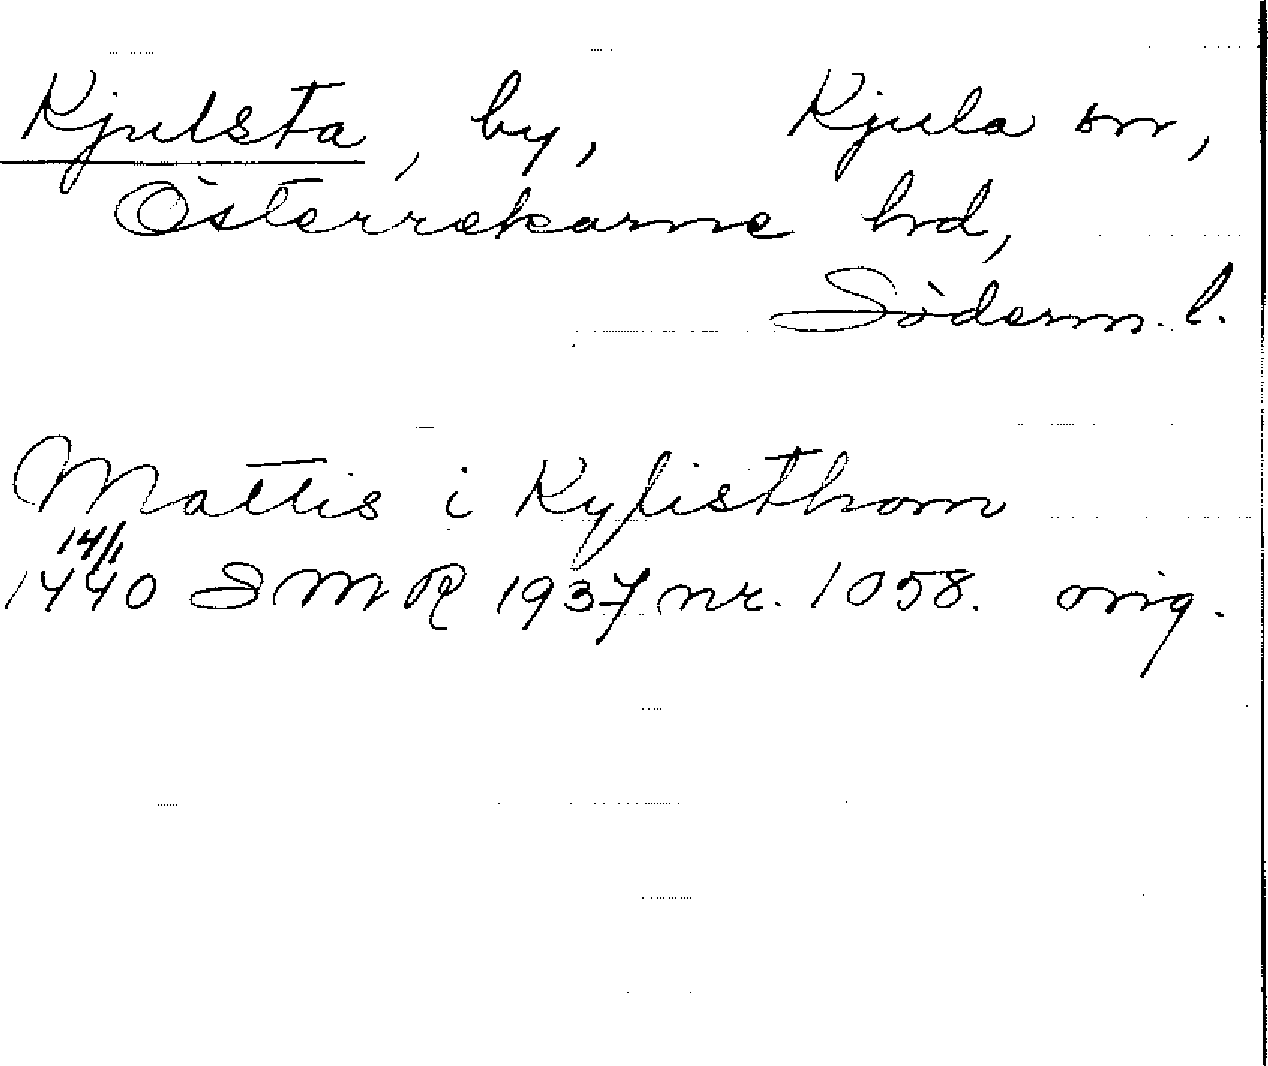 Kjulsta, by, Kjula sn,
Österrekarne hd,
Söderm. l.
Mattis i Kyflisthom
14/1
1440 SMR 1937 nr. 1058. orig.